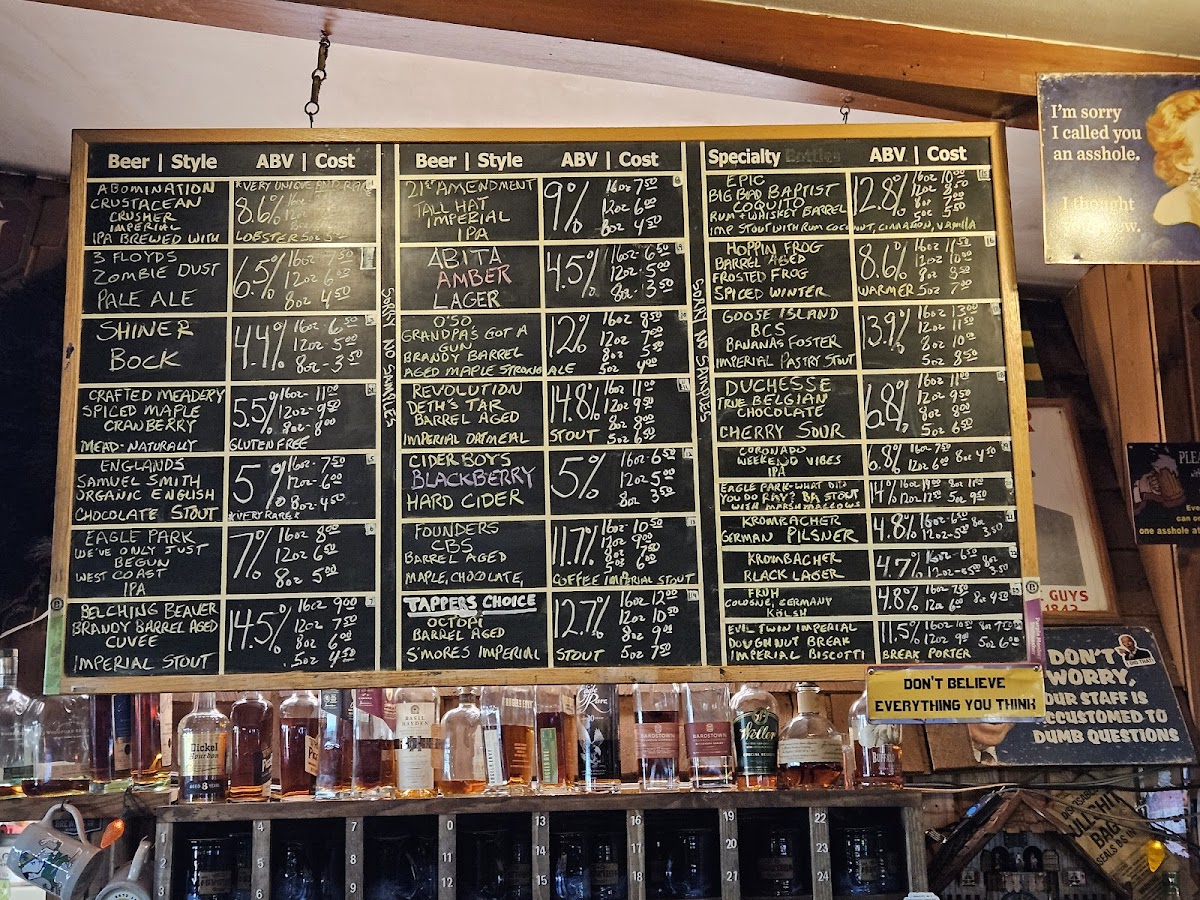 Beer | Style
ABV | Cost
ABOMINATION
CRUSTACEAN
CRUSHER
IMPERIAL
IPA BREWED WITH
*VERY UNIQUE AND RARE
8.6%
LOBSTER
3 FLOYDS
ZOMBIE DUST
PALE ALE
6.5%
16oz 7.50
12oz 6.00
8oz 4.50
SHINER
BOCK
4.4%
16oz 6.50
12oz-5.00
8oz-3.50
CRAFTED MEADERY
SPICED MAPLE
CRANBERRY
MEAD-NATURALLY
5.5%
16oz-11.00
12oz-9.50
8oz-8.00
GLUTEN FREE
ENGLANDS
SAMUEL SMITH
ORGANIC ENGLISH
CHOCOLATE STOUT
5%
16oz-7.50
12oz-6.00
8oz-4.50
*VERY RARE*
EAGLE PARK
WE'VE ONLY JUST
BEGUN
WEST COAST
IPA
7%
16oz 8.00
12oz 6.50
8oz 5.00
BELCHING BEAVER
BRANDY BARREL AGED
CUVEE
IMPERIAL STOUT
14.5%
16oz 9.00
12oz 7.50
8oz 6.00
5oz 4.50
SORRY NO SAMPLES
Beer | Style
ABV | Cost
21st AMENDMENT
TALL HAT
IMPERIAL
IPA
9%
16oz 7.50
12oz 6.00
8oz 4.50
ABITA
AMBER
LAGER
4.5%
16oz-6.50
12oz-5.00
8oz-3.50
O'SO
GRANDPA'S GOT A
GUN
BRANDY BARREL
AGED MAPLE STRONG ALE
12%
16oz 8.50
12oz 7.00
8oz 5.50
5oz 4.00
REVOLUTION
DETH'S TAR
BARREL AGED
IMPERIAL OATMEAL STOUT
14.8%
16oz 11.00
12oz 9.50
8oz 8.00
5oz 6.50
CIDER BOYS
BLACKBERRY
HARD CIDER
5%
16oz-6.50
12oz 5.00
8oz 3.50
FOUNDERS
CBS
BARREL AGED
MAPLE, CHOCOLATE,
COFFEE IMPERIAL STOUT
11.7%
16oz 10.50
12oz 9.00
8oz 7.50
5oz 6.00
TAPPERS CHOICE
OCTOPI
BARREL AGED
S'MORES IMPERIAL STOUT
12.7%
16oz 12.00
12oz 10.50
8oz 9.00
5oz 7.50
SORRY NO SAMPLES
Specialty Bottles
ABV | Cost
EPIC
BIG BAD BAPTIST
COQUITO
RUM + WHISKEY BARREL
IMP STOUT WITH RUM COCONUT, CINNAMON, VANILLA
12.8%
16oz 10.00
12oz 8.50
8oz 7.00
HOPPIN FROG
BARREL AGED
FROSTED FROG
SPICED WINTER WARMER
8.6%
16oz 11.50
12oz 10.00
8oz 8.50
5oz 7.00
GOOSE ISLAND
BCS
BANANAS FOSTER
IMPERIAL PASTRY STOUT
13.9%
16oz 13.00
12oz 11.50
8oz 10.00
5oz 8.50
DUCHESSE
TRUE BELGIAN
CHOCOLATE
CHERRY SOUR
6.8%
16oz 11.00
12oz 9.50
8oz 8.00
5oz 6.50
CORONADO
WEEKEND VIBES
IPA
6.8%
16oz-7.50
12oz 6.00
8oz 4.50
EAGLE PARK-WHAT DID
YOU DO RAY? BA STOUT
WITH MARSHMALLOWS
14%
KROMBACHER
GERMAN PILSNER
4.8%
16oz-6.50
12oz-5.00
8oz 3.50
KROMBACHER
BLACK LAGER
4.7%
16oz-6.50
12oz-5.00
8oz 3.50
FRUH
COLOGNE, GERMANY
KÖLSH
4.8%
16oz 7.50
12oz 6.00
8oz 4.50
EVIL TWIN IMPERIAL
DOUGHNUT BREAK
IMPERIAL BISCOTTI BREAK PORTER
11.5%
16oz 10.50
12oz 9.00
8oz 7.50
5oz 6.00
I'm sorry
I called you
an asshole.
I thought
DON'T BELIEVE
EVERYTHING YOU THINK
DON'T
WORRY,
OUR STAFF IS
ACCUSTOMED TO
DUMB QUESTIONS
I DID THAT!
GUYS
one asshole at
Nickel
Bourbon
BASIL
HAYDEN
BARDSTOWN
BARDSTOWN
Weller
1
2
3
4
5
6
7
8
9
10
11
12
13
14
15
16
17
18
19
20
21
22
23
24